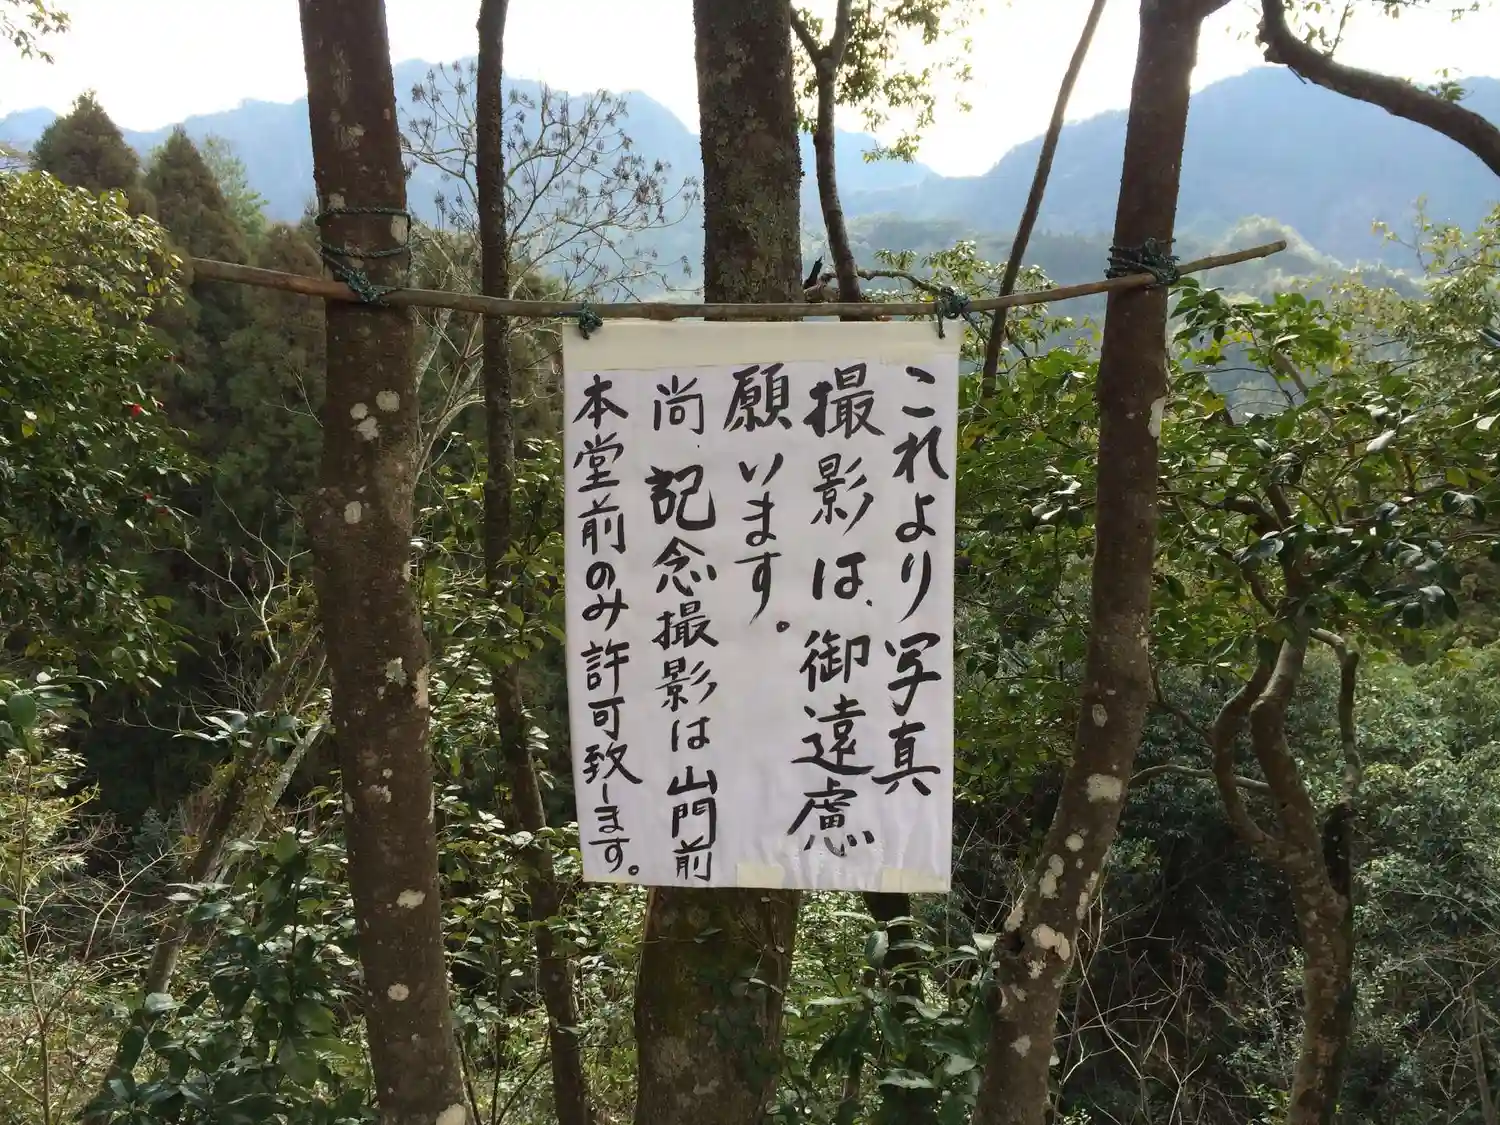 これより写真
撮影は、御遠慮
願います。
尚、記念撮影は山門前
本堂前のみ許可致します。